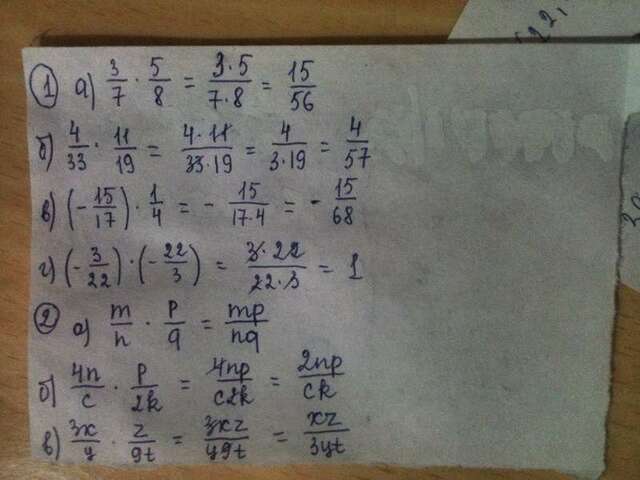 ① а) 3/7 · 5/8 = 3·5/7·8 = 15/56
б) 4/33 · 11/19 = 4·11/33·19 = 4/3·19 = 4/57
в) (-15/17) · 1/4 = - 15/17·4 = - 15/68
г) (-3/22) · (-22/3) = 3·22/22·3 = 1
② а) m/n · p/q = mp/nq
б) 4n/c · p/2k = 4np/c2k = 2np/ck
в) 3x/y · z/9t = 3xz/y9t = xz/3yt